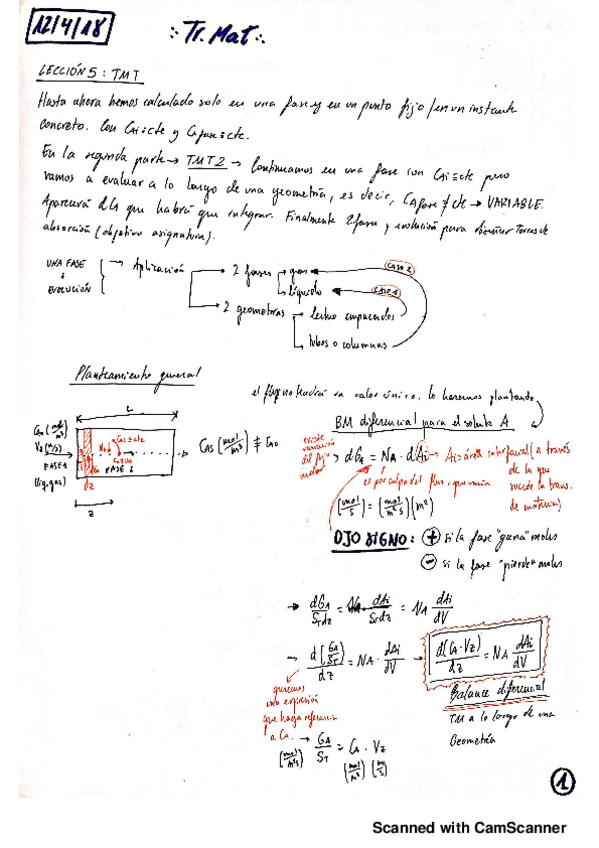 12/4/18
Tr. Mat
LECCIÓN 5: TMT
Hasta ahora hemos calculado solo en una fase y en un punto fijo / en un instante
concreto. Con CAi ≡ cte y CAfase ≡ cte.
En la segunda parte → TMT2 → Continuamos en una fase con CAi ≡ cte pero
vamos a evaluar a lo largo de una geometría, es decir, CAfase ≠ cte → VARIABLE.
Aparecerá dCA que habrá que integrar. Finalmente 2 fases y evolución para diseñar torres de
absorción (objetivo asignatura).
UNA FASE
+
EVOLUCIÓN
→ Aplicación
2 fases
gas
líquido
CASO 2
CASO 1
2 geometrías
lechos empacados
tubos o columnas
Planteamiento general
el flujo no tendrá un valor único. lo haremos planteando
BM diferencial para el soluto A
L
CAi ≡ cte
FASE 1
(líq, gas)
dz
z
CAS [mol/m³] ≠ CA0
existe variación del flujo molar
dGA = NA · dAi → Ai ≡ área interfacial (a través
de la que
sucede la trans.
de materia)
es por culpa del flux, que varía
[mol/s] = [mol/m² s] (m²)
OJO SIGNO: + si la fase "gana" moles
− si la fase "pierde" moles
→ dGA/ST dz = NA · dAi/ST dz = NA dAi/dV
→ d[GA/ST]/dz = NA · dAi/dV → d(CA · Vz)/dz = NA dAi/dV
Balance diferencial
TM a lo largo de una
Geometría
queremos
una expresión
que haga referencia
a CA.
→ GA/ST = CA · Vz
[mol/m² s] [mol/m³] [m/s]
1
Scanned with CamScanner